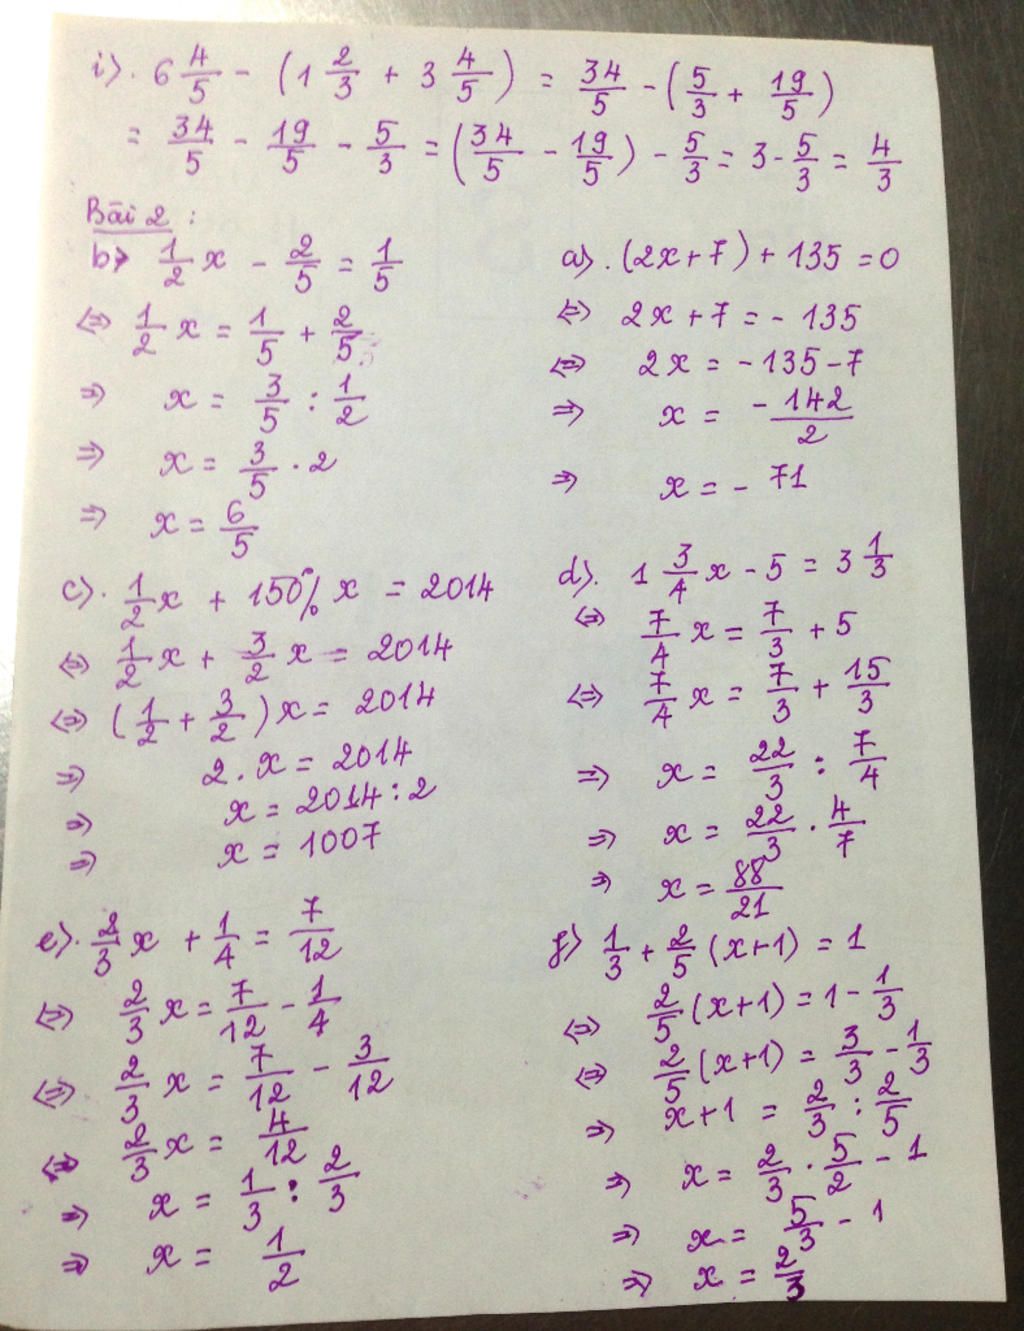 i). 6 4/5 - (1 2/3 + 3 4/5) = 34/5 - (5/3 + 19/5)
= 34/5 - 19/5 - 5/3 = (34/5 - 19/5) - 5/3 = 3 - 5/3 = 4/3
Bài 2 :
b) 1/2 x - 2/5 = 1/5
⇔ 1/2 x = 1/5 + 2/5
⇒ x = 3/5 : 1/2
⇒ x = 3/5 . 2
⇒ x = 6/5
a). (2x+7) + 135 = 0
⇔ 2x + 7 = - 135
⇔ 2x = - 135 - 7
⇒ x = -142/2
⇒ x = - 71
c). 1/2 x + 150% x = 2014
⇔ 1/2 x + 3/2 x = 2014
⇔ (1/2 + 3/2) x = 2014
⇒ 2 . x = 2014
⇒ x = 2014 : 2
⇒ x = 1007
d). 1 3/4 x - 5 = 3 1/3
⇔ 7/4 x = 7/3 + 5
⇔ 7/4 x = 7/3 + 15/3
⇒ x = 22/3 : 7/4
⇒ x = 22/3 . 4/7
⇒ x = 88/21
e). 2/3 x + 1/4 = 7/12
⇔ 2/3 x = 7/12 - 1/4
⇔ 2/3 x = 7/12 - 3/12
⇔ 2/3 x = 4/12
⇒ x = 1/3 : 2/3
⇒ x = 1/2
f) 1/3 + 2/5 (x+1) = 1
⇔ 2/5 (x+1) = 1 - 1/3
⇔ 2/5 (x+1) = 3/3 - 1/3
⇒ x+1 = 2/3 : 2/5
⇒ x = 2/3 . 5/2 - 1
⇒ x = 5/3 - 1
⇒ x = 2/3